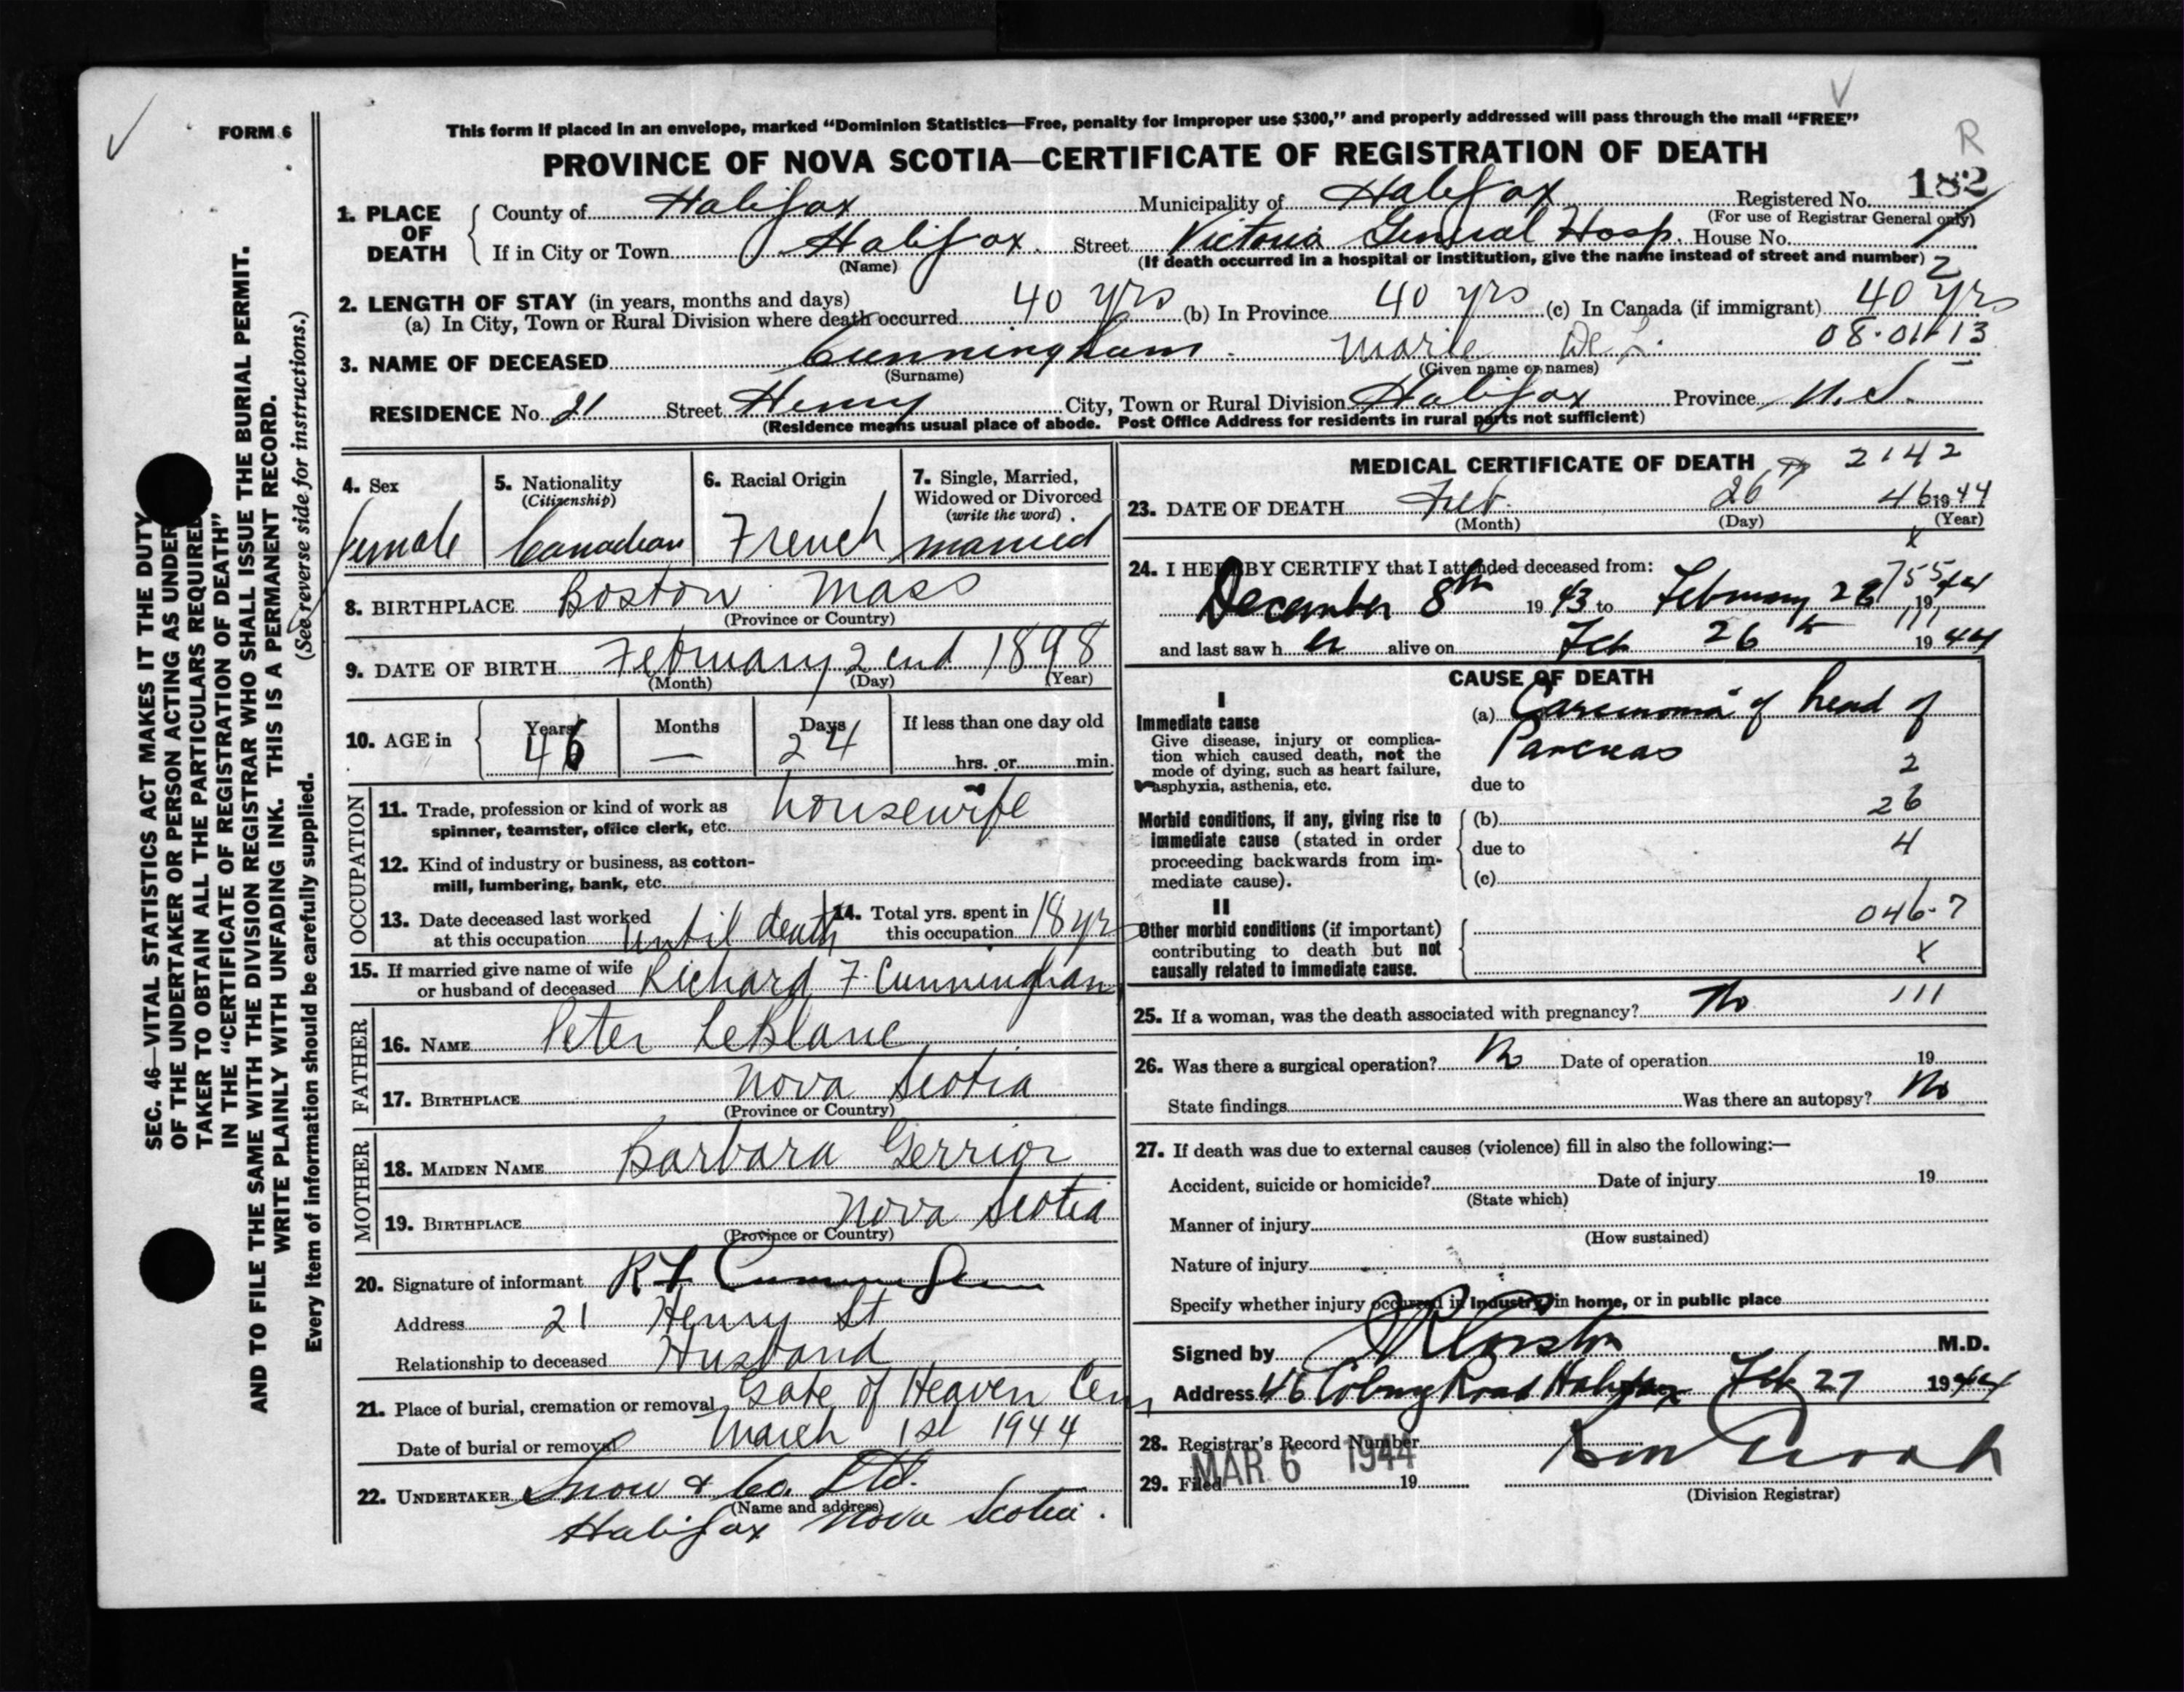 This form if placed in an envelope, marked “Dominion Statistics—Free, penalty for improper use $300,” and properly addressed will pass through the mail “FREE”
FORM 6
PROVINCE OF NOVA SCOTIA—CERTIFICATE OF REGISTRATION OF DEATH
R
182
1. PLACE OF DEATH
County of Halifax Municipality of Halifax Registered No.
(For use of Registrar General only)
If in City or Town Halifax Street Victoria General Hosp. House No.
(Name) (If death occurred in a hospital or institution, give the name instead of street and number) 2
2. LENGTH OF STAY (in years, months and days)
(a) In City, Town or Rural Division where death occurred 40 yrs (b) In Province 40 yrs (c) In Canada (if immigrant) 40 yrs
08.01.13
3. NAME OF DECEASED Cunningham. Marie De L.
(Surname) (Given name or names)
RESIDENCE No. 21 Street Henry City, Town or Rural Division Halifax Province N.S.
(Residence means usual place of abode. Post Office Address for residents in rural parts not sufficient)
4. Sex female
5. Nationality (Citizenship) Canadian
6. Racial Origin French
7. Single, Married, Widowed or Divorced (write the word) married
8. BIRTHPLACE Boston Mass
(Province or Country)
9. DATE OF BIRTH February 2cnd 1898
(Month) (Day) (Year)
10. AGE in Years 46 Months — Days 24 If less than one day old hrs. or min.
OCCUPATION
11. Trade, profession or kind of work as spinner, teamster, office clerk, etc. housewife
12. Kind of industry or business, as cotton-mill, lumbering, bank, etc.
13. Date deceased last worked at this occupation until death
14. Total yrs. spent in this occupation 18 yrs
15. If married give name of wife or husband of deceased Richard F. Cunningham
FATHER
16. NAME Peter LeBlanc
17. BIRTHPLACE Nova Scotia
(Province or Country)
MOTHER
18. MAIDEN NAME Barbara Gerrior
19. BIRTHPLACE Nova Scotia
(Province or Country)
20. Signature of informant R F Cunningham
Address 21 Henry St
Relationship to deceased Husband
21. Place of burial, cremation or removal Gate of Heaven Cem
Date of burial or removal March 1st 1944
22. UNDERTAKER Snow & Co. Ltd.
(Name and address)
Halifax Nova Scotia.
MEDICAL CERTIFICATE OF DEATH 2142
23. DATE OF DEATH Feb. 26th 46 1944
(Month) (Day) (Year)
x
24. I HEREBY CERTIFY that I attended deceased from:
755
December 8th 1943 to February 26 1944
111
and last saw h er alive on Feb 26th 1944
CAUSE OF DEATH
I
Immediate cause
Give disease, injury or complication which caused death, not the mode of dying, such as heart failure, asphyxia, asthenia, etc.
(a) Carcinoma of head of
Pancreas
2
due to
26
Morbid conditions, if any, giving rise to immediate cause (stated in order proceeding backwards from immediate cause).
(b)
due to 4
(c)
II
046.7
Other morbid conditions (if important) contributing to death but not causally related to immediate cause.
x
25. If a woman, was the death associated with pregnancy? No 111
26. Was there a surgical operation? No Date of operation 19
State findings Was there an autopsy? No
27. If death was due to external causes (violence) fill in also the following:—
Accident, suicide or homicide? Date of injury 19
(State which)
Manner of injury
(How sustained)
Nature of injury
Specify whether injury occurred in industry, in home, or in public place
Signed by M.D.
Address 46 Coburg Road Halifax Feb 27 1944
28. Registrar's Record Number
MAR 6 1944
29. Filed 19
(Division Registrar)
SEC. 46—VITAL STATISTICS ACT MAKES IT THE DUTY
OF THE UNDERTAKER OR PERSON ACTING AS UNDER
TAKER TO OBTAIN ALL THE PARTICULARS REQUIRED
IN THE “CERTIFICATE OF REGISTRATION OF DEATH”
AND TO FILE THE SAME WITH THE DIVISION REGISTRAR WHO SHALL ISSUE THE BURIAL PERMIT.
WRITE PLAINLY WITH UNFADING INK. THIS IS A PERMANENT RECORD.
Every item of information should be carefully supplied. (See reverse side for instructions.)